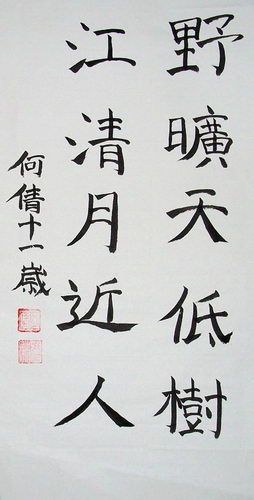 野曠天低樹
江清月近人
何倩十一歲